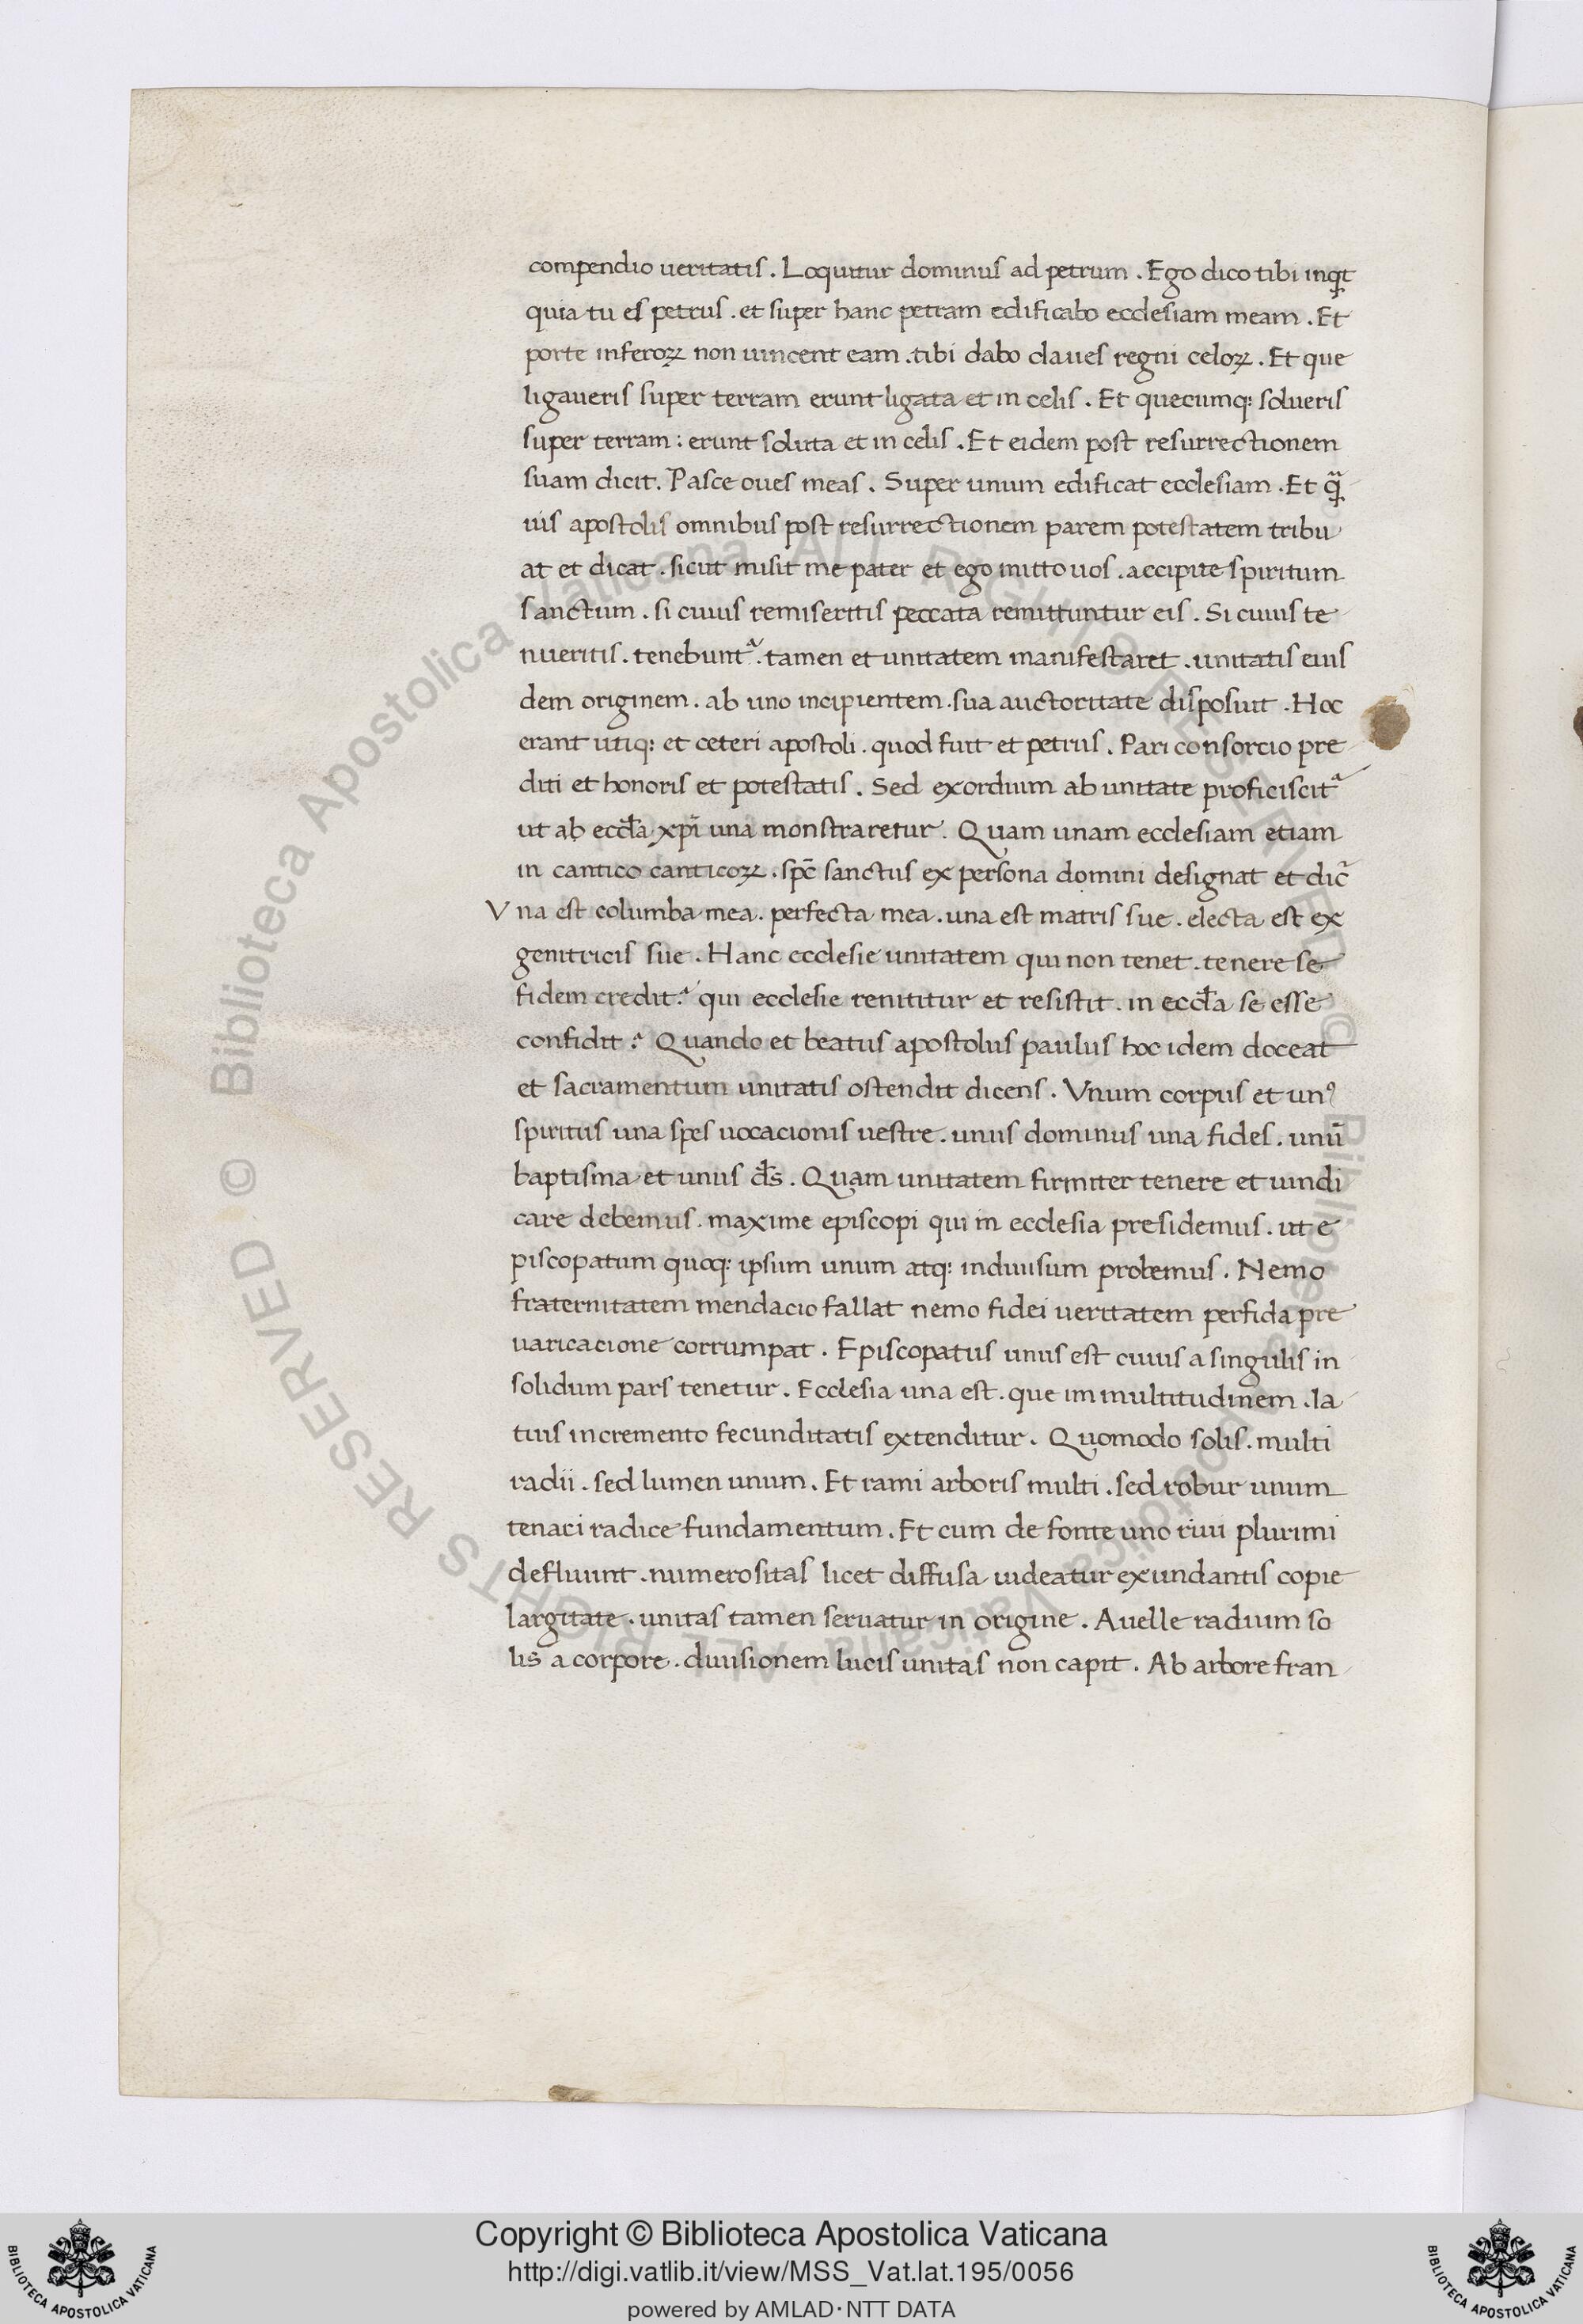 compendio ueritatis . Loquitur dominus ad petrum . Ego dico tibi inq̣t
quia tu es petrus . et super hanc petram edificabo ecclesiam meam . Et
porte inferoꝝ non uincent eam . tibi dabo claues regni celoꝝ . Et que
ligaueris super terram erunt ligata et in celis . Et quecumq: solueris
super terram : erunt soluta et in celis . Et eidem post resurrectionem
suam dicit . Pasce oues meas . Super unum edificat ecclesiam . Et q̃
uis apostolis omnibus post resurrectionem parem potestatem tribu
at et dicat . sicut misit me pater et ego mitto uos . accipite spiritum
sanctum . si cuius remiseritis peccata remittuntur eis . Si cuius te
nueritis . tenebunt᷑ . tamen et unitatem manifestaret . unitatis eius
dem originem . ab uno incipientem . sua auctoritate disposuit . Hoc
erant utiq: et ceteri apostoli . quod fuit et petrus . Pari consorcio pre
diti et honoris et potestatis . Sed exordium ab unitate proficiscit᷑
ut ab eccl̅a xp̅i una monstraretur . Quam unam ecclesiam etiam
in cantico canticoꝝ . sp̅c sanctus ex persona domini designat et dic̃
Vna est columba mea . perfecta mea . una est matris sue . electa est ex
genitricis sue . Hanc ecclesie unitatem qui non tenet . tenere se
fidem credit ? qui ecclesie renititur et resistit . in eccl̅a se esse
confidit ? Quando et beatus apostolus paulus hoc idem doceat
et sacramentum unitatis ostendit dicens . Vnum corpus et unꝰ
spiritus una spes uocacionis uestre . unus dominus una fides . unu̅
baptisma et unus d̅s . Quam unitatem firmiter tenere et uindi
care debemus . maxime episcopi qui in ecclesia presidemus . ut e
piscopatum quoq: ipsum unum atq: indiuisum probemus . Nemo
fraternitatem mendacio fallat nemo fidei ueritatem perfida pre
uaricacione corrumpat . Episcopatus unus est cuius a singulis in
solidum pars tenetur . Ecclesia una est . que im multitudinem . la
tius incremento fecunditatis extenditur . Quomodo solis . multi
radii . sed lumen unum . Et rami arboris multi . sed robur unum
tenaci radice fundamentum . Et cum de fonte uno riui plurimi
defluunt . numerositas licet diffusa uideatur exundantis copie
largitate . unitas tamen seruatur in origine . Auelle radium so
lis a corpore . diuisionem lucis unitas non capit . Ab arbore fran
© Biblioteca Apostolica Vaticana ALL RIGHTS RESERVED © Biblioteca Apostolica Vaticana ALL RIGHTS RESERVED
Copyright © Biblioteca Apostolica Vaticana
http://digi.vatlib.it/view/MSS_Vat.lat.195/0056
powered by AMLAD·NTT DATA
BIBLIOTECA APOSTOLICA VATICANA
BIBLIOTECA APOSTOLICA VATICANA